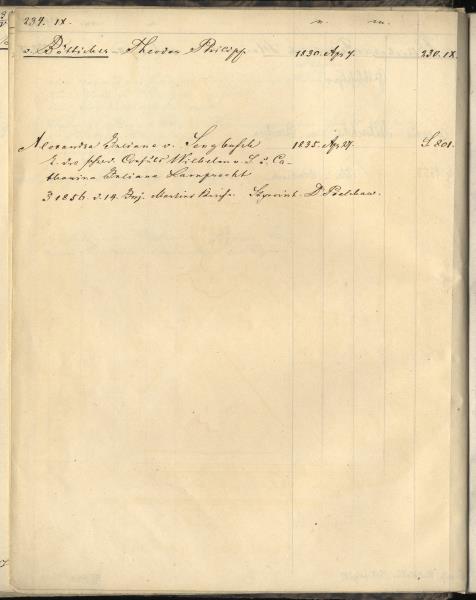 239. IX. n. m.
v. Bötticher Theodor Philipp 1830. Apr 7. 230. IX.
Alexandra Juliane v. Sengbusch 1835. Apr 27. S 801.
T. des schwed. Consuls Wilhelm v. S. u. Ca-
tharina Juliana Lamprecht
1856. d. 14. Martins Kirche. D. Poelchau.